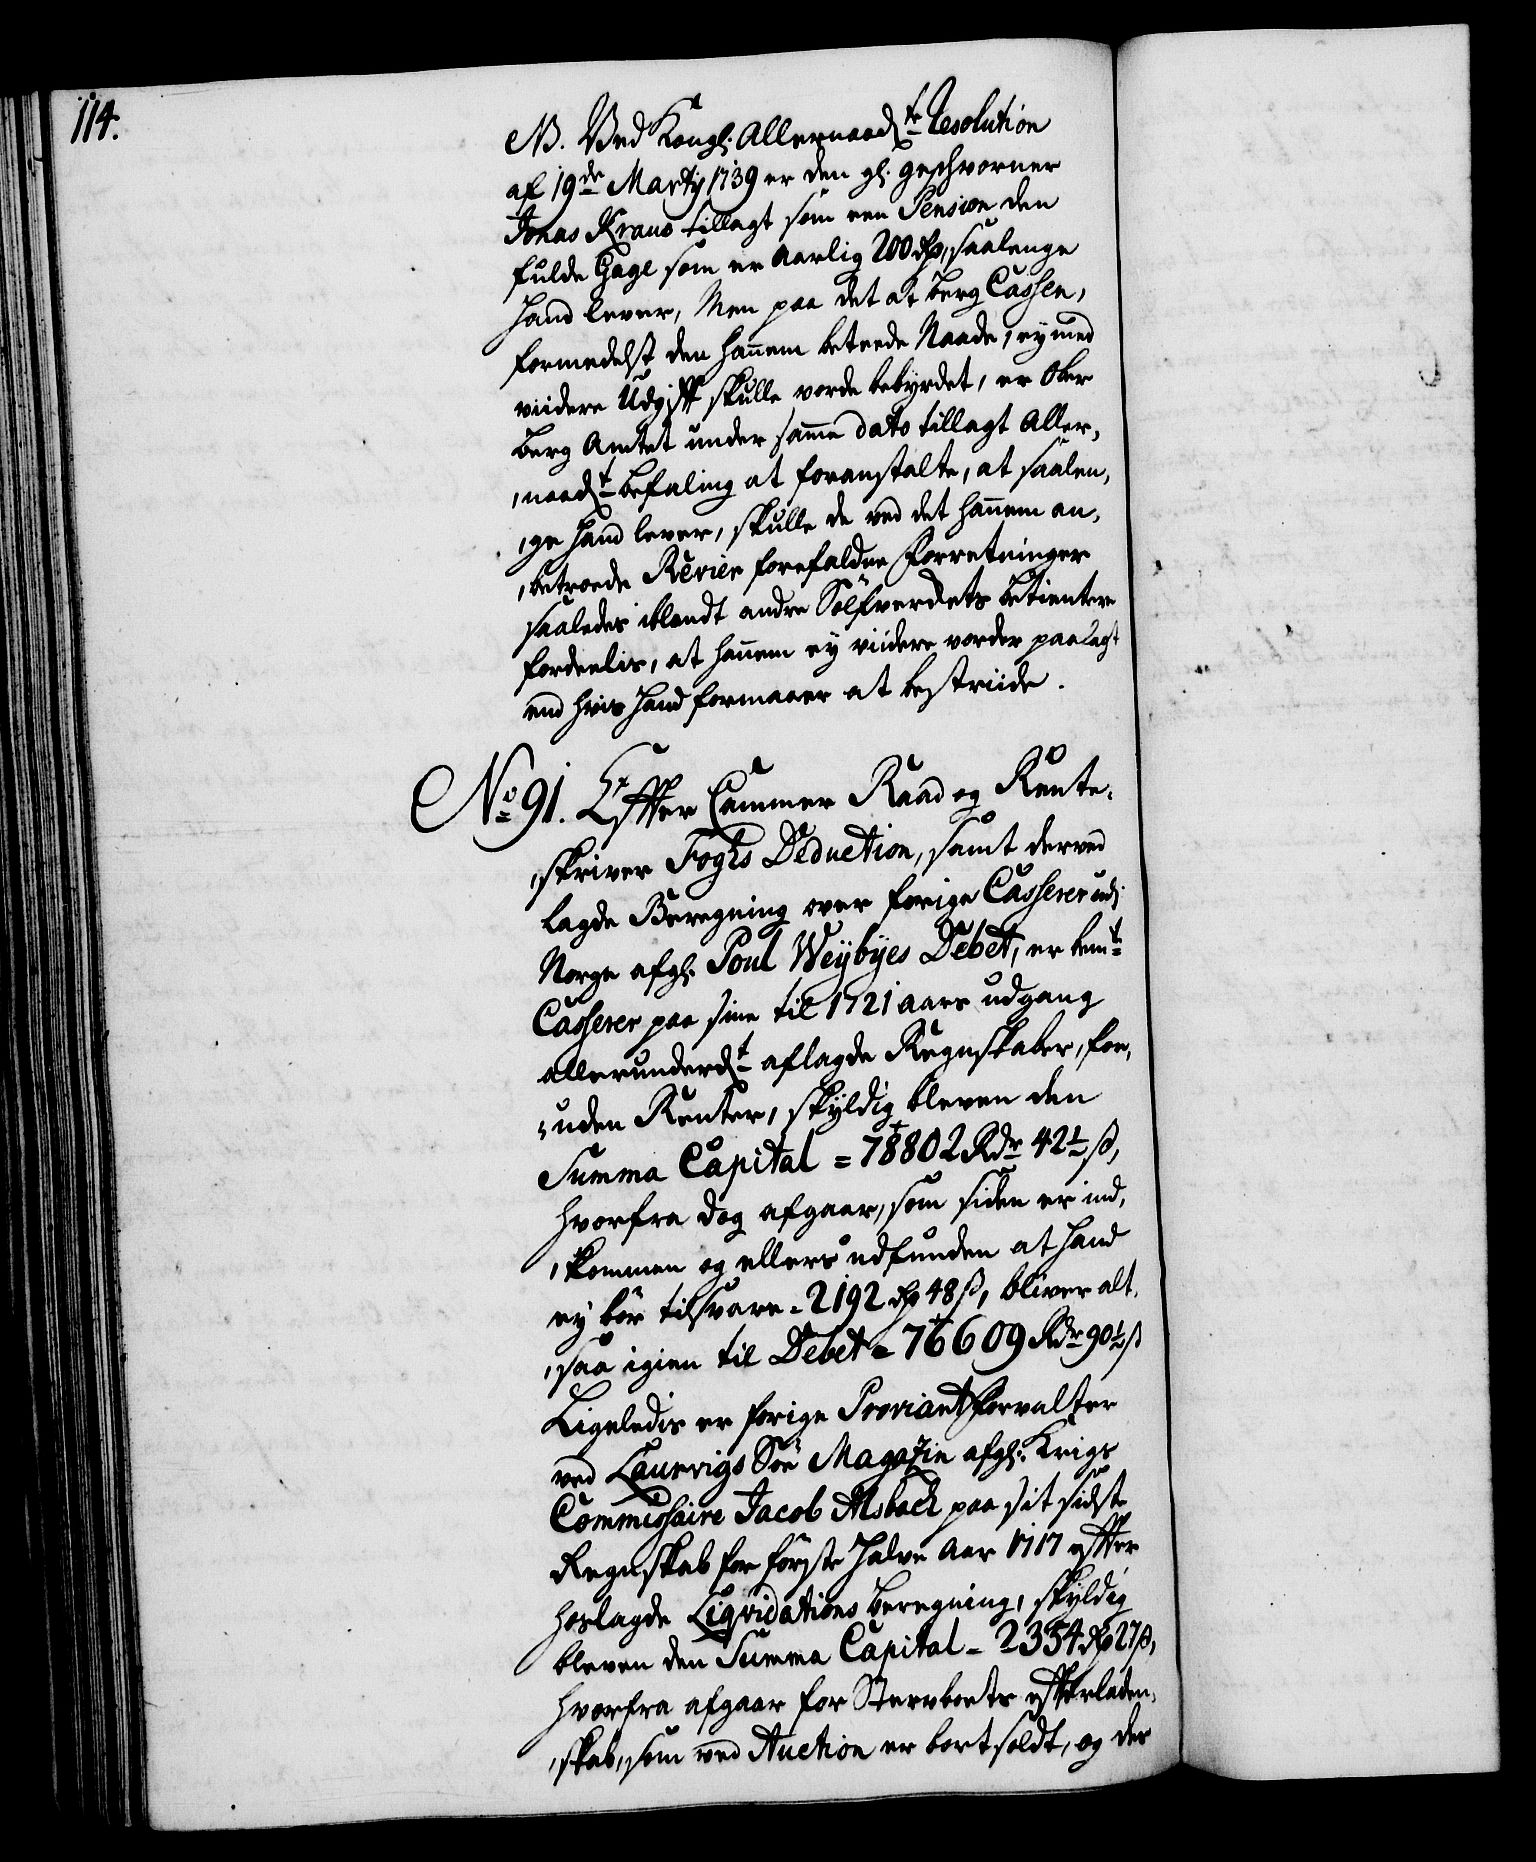 114.
NB. Ved Kongl. Allernaadste Resolution
af 19de Marty 1739 er den gl. geschvorner
Jonas Kraus tillagt som een Pension den
fulde Gage som er Aarlig 200 rdr, saalenge
hand lever, Men paa det at berg Cassen,
formedelst den hannem beteede Naade, ey med
viidere Udgift skulle vorde bebyrdet, er Ober
berg Amtet under samme dato tillagt Aller,
,naadt befaling at foranstalte, at saalen,
,ge hand lever, skulle de ved det hannem an,
,betroede Revier forefaldne Forretninger
saaledes iblandt andre Sölfverkets betientere
fordeelis, at hannem ey viidere vorder paalagt
end hvis hand formaaer at bestriide.
No 91. Efter Cammer Raad og Rente,
,skriver Foghs Deduction, samt derved
lagde Beregning over forige Casserer udi
Norge afgl. Poul Weybyes Debet, er bemte
Casserer paa sine til 1721 aars udgang
allerunderdt aflagde Regnskaber, for,
,uden Renter, skyldig bleven den
Summa Capital = 78802 Rdr 42½ ß,
hvorfra dog afgaar, som siden er ind,
,kommen og ellers udfunden at hand
ey bör tilsvare = 2192 rdr 48 ß, bliver alt,
,saa igien til Debet = 76609 Rdr 90½ ß
Ligeledis er forige Proviantforvalter
ved Laurvigs Söe Magazin afgl. Krigs
Commissaire Jacob Alsbach paa sit sidste
Regnskab for förste halve Aar 1717 efter
hoslagde Liqvidations beregning, skyldig
bleven den Summa Capital = 2354 rdr 27 ß,
hvorfra afgaar for Sterboets efterladen,
,skab, som ved Auction er bortsoldt, og der